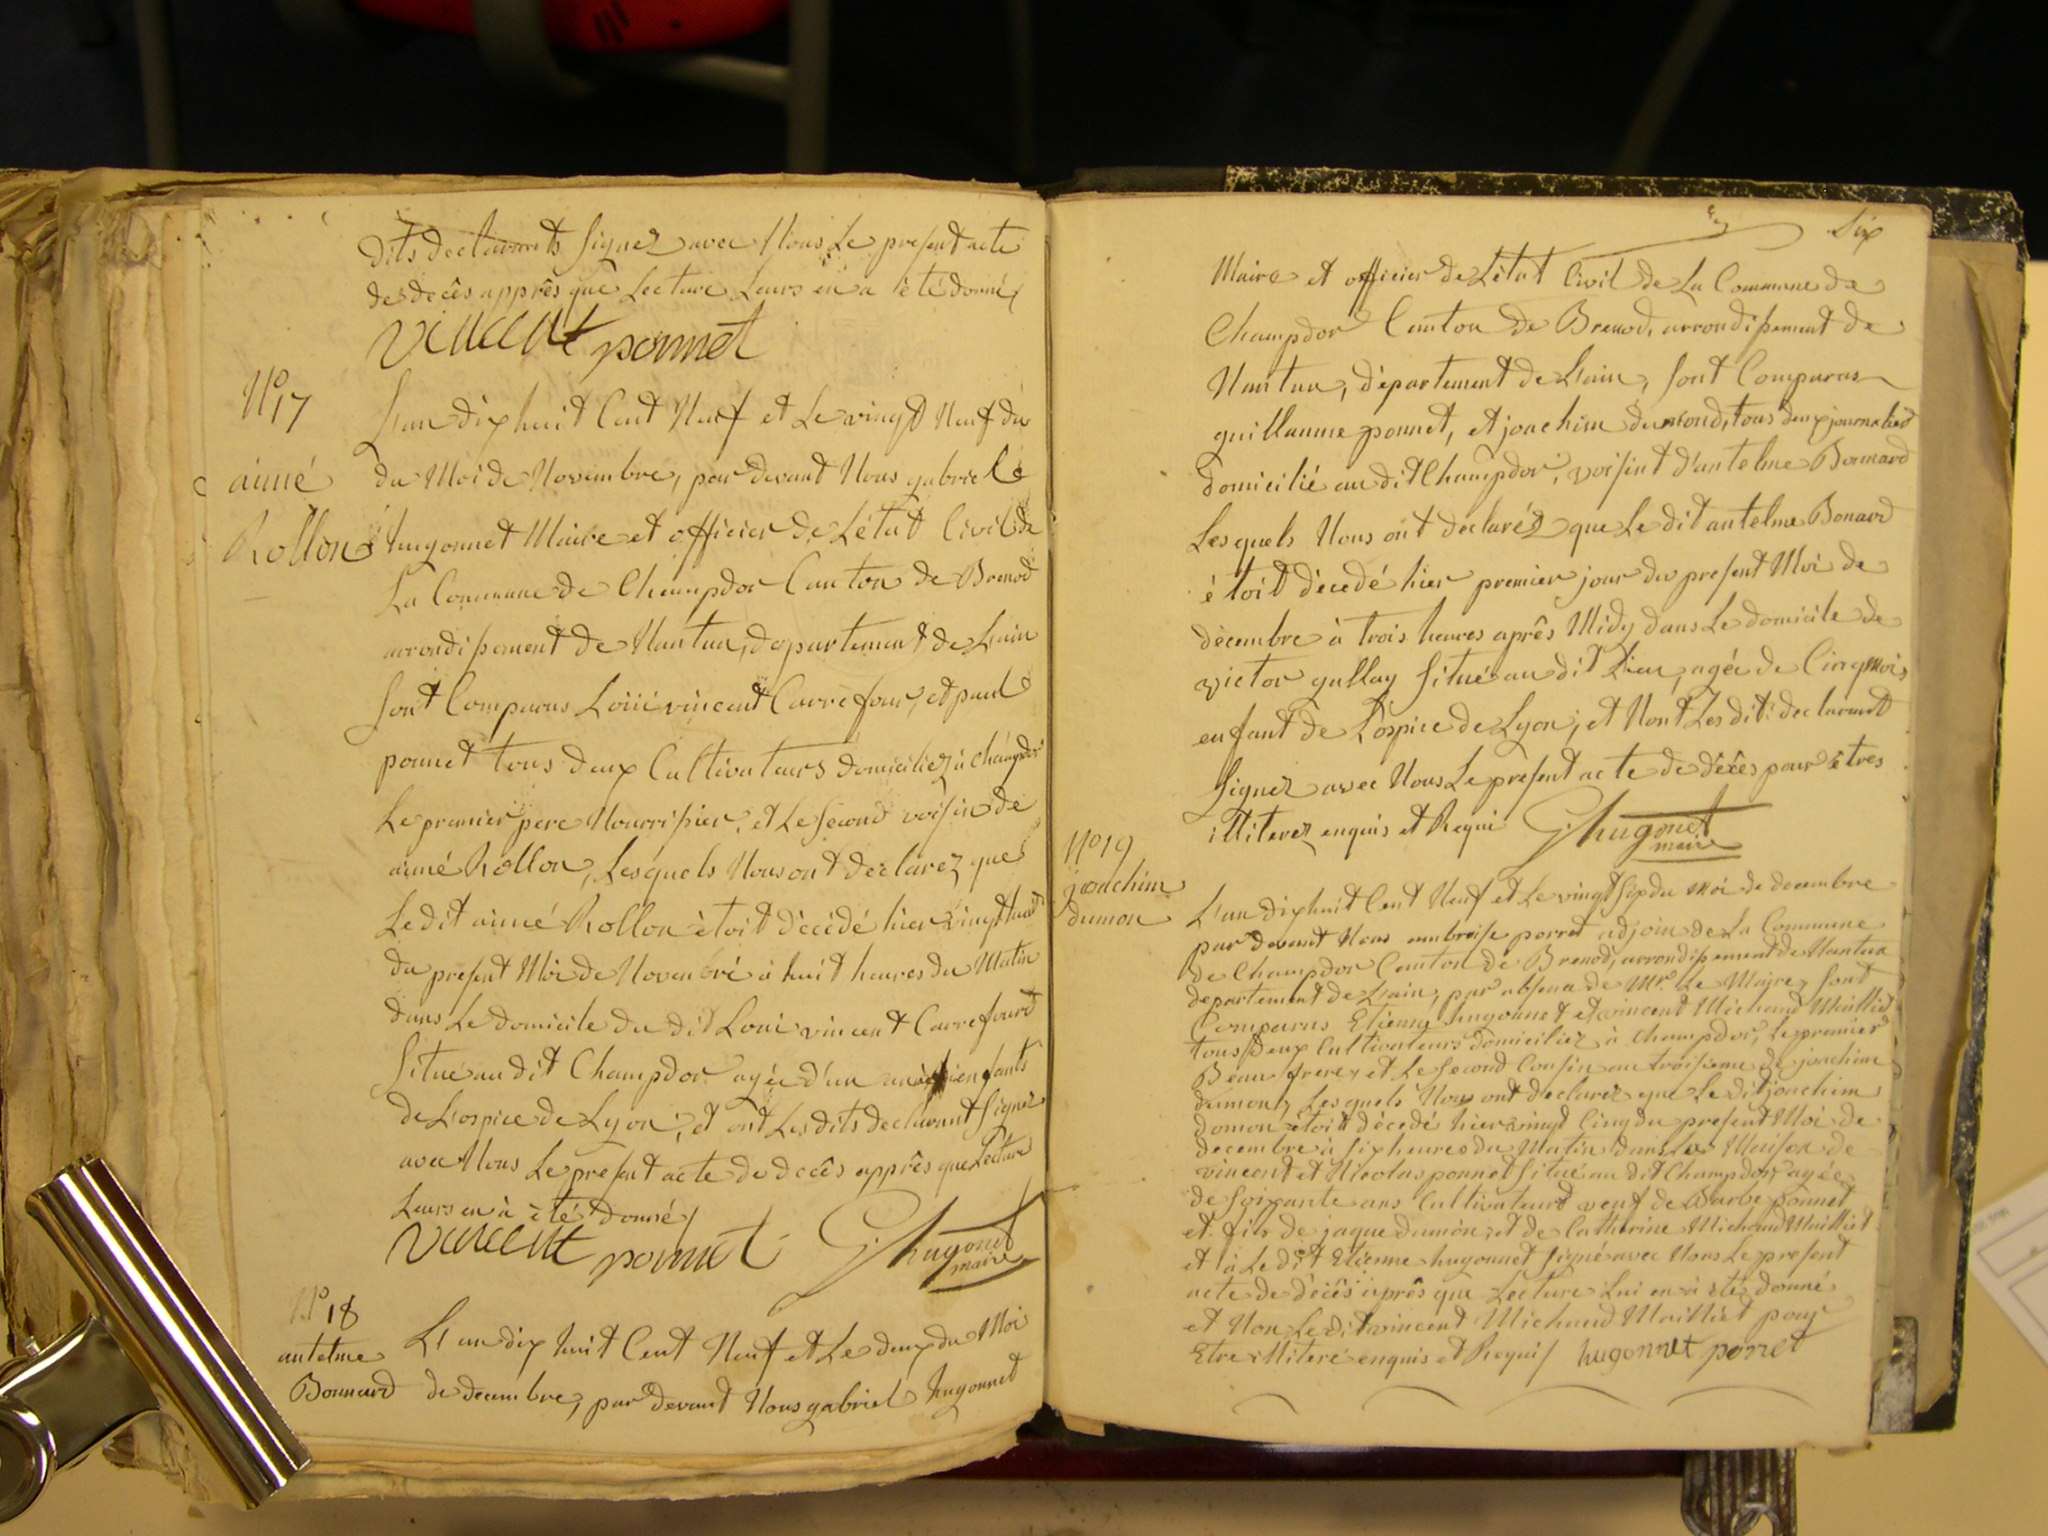 dits declarants signez avec Nous Le present acte
de decês apprês que Lecture Leurs en a êté donné
vincent ponnet
N° 17
aimé
Rollon
L'an dix huit Cent Neuf et Le vingt Neuf du
du Moi de Novembre, par devant Nous gabriel
hugonnet Maire et officier de L'état Civil de
La Commune de Champdor Canton de Brenod
arrondissement de Nantua, departement de L'ain
sont Comparus Loui vincent Carrefour, et paul
ponnet tous deux Cultivateurs domiciliez à champdor
Le premier pere Nourrissier, et Le second voisin de
aimé Rollon, Lesquels Nous ont declarez que
Le dit aimé Rollon êtoit dècèdé hier vingt huit
du present Moi de Novembre à huit heures du Matin
dans Le domicile du dit Loui vincent Carrefourd
situé au dit Champdor agée d'un an enfants
de L'ospice de Lyon; et ont Les dits declarant signez
avec Nous Le present acte de decês apprês que Lecture
Leurs en à êté donné
vincent ponnet G. hugonet
maire
N° 18
antelme
Bonnard
L'an dix huit Cent Neuf et Le deux du Moi
de decembre, par devant Nous gabriel hugonnet
six
Maire et officier de L'état Civil de La Commune de
Champdor Canton de Brenod, arrondissement de
Nantua, département de L'ain, sont Comparus
guillaume ponnet, et joachim dumond, tous deux journalied
domicilié au dit Champdor, voisint d'antelme Bonnard
Lesquels Nous ont declaréz que Le dit antelme Bonard
êtoit dècedé hier premier jour du present Moi de
dècembre à trois heures aprês Midy dans Le domicile de
victor gullay situé au dit Lieu, agée de Cinq mois
enfant de L'ospice de Lyon; et Nont Les dits declarant
signez avec Nous Le present acte de dècês pour êtres
illiterez enquis et Requi G. hugonet
maire
N° 19
joachim
dumon
L'an dix huit Cent Neuf et Le vingt six du Moi de decembre
par devant Nous ambroise porret adjoin de La Commune
de Champdor Canton de Brenod, arrondissement de Nantua
departement de L'ain, par absence de Mr. Le Maire, sont
Comparus Etienne hugonnet et vincent Michaud Maillied
tous deux Cultivateurs domiciliez à champdor, Le premier
Beau frere, et Le second Cousin au troisieme de joachim
dumon, Lesquels Nous ont declarez que Le dit joachim
domon êtoit dècédé hier vingt Cinq du present Moi de
decembre à six heures du Matin dans La Maison de
vincent et Nicolas ponnet situé au dit Champdor, agée
de soixante ans Cultivateurd veuf de Barbe ponnet
et fils de jaque dumon, et de Catherine Michaud Mailliet
et à Le dit Etienne hugonnet signé avec Nous Le present
acte de dècês après que Lecture Lui en à êté donné
et Non Le dit vincent Michaud Mailliet pour
Etre illiteré enquis et Requis hugonnet porret